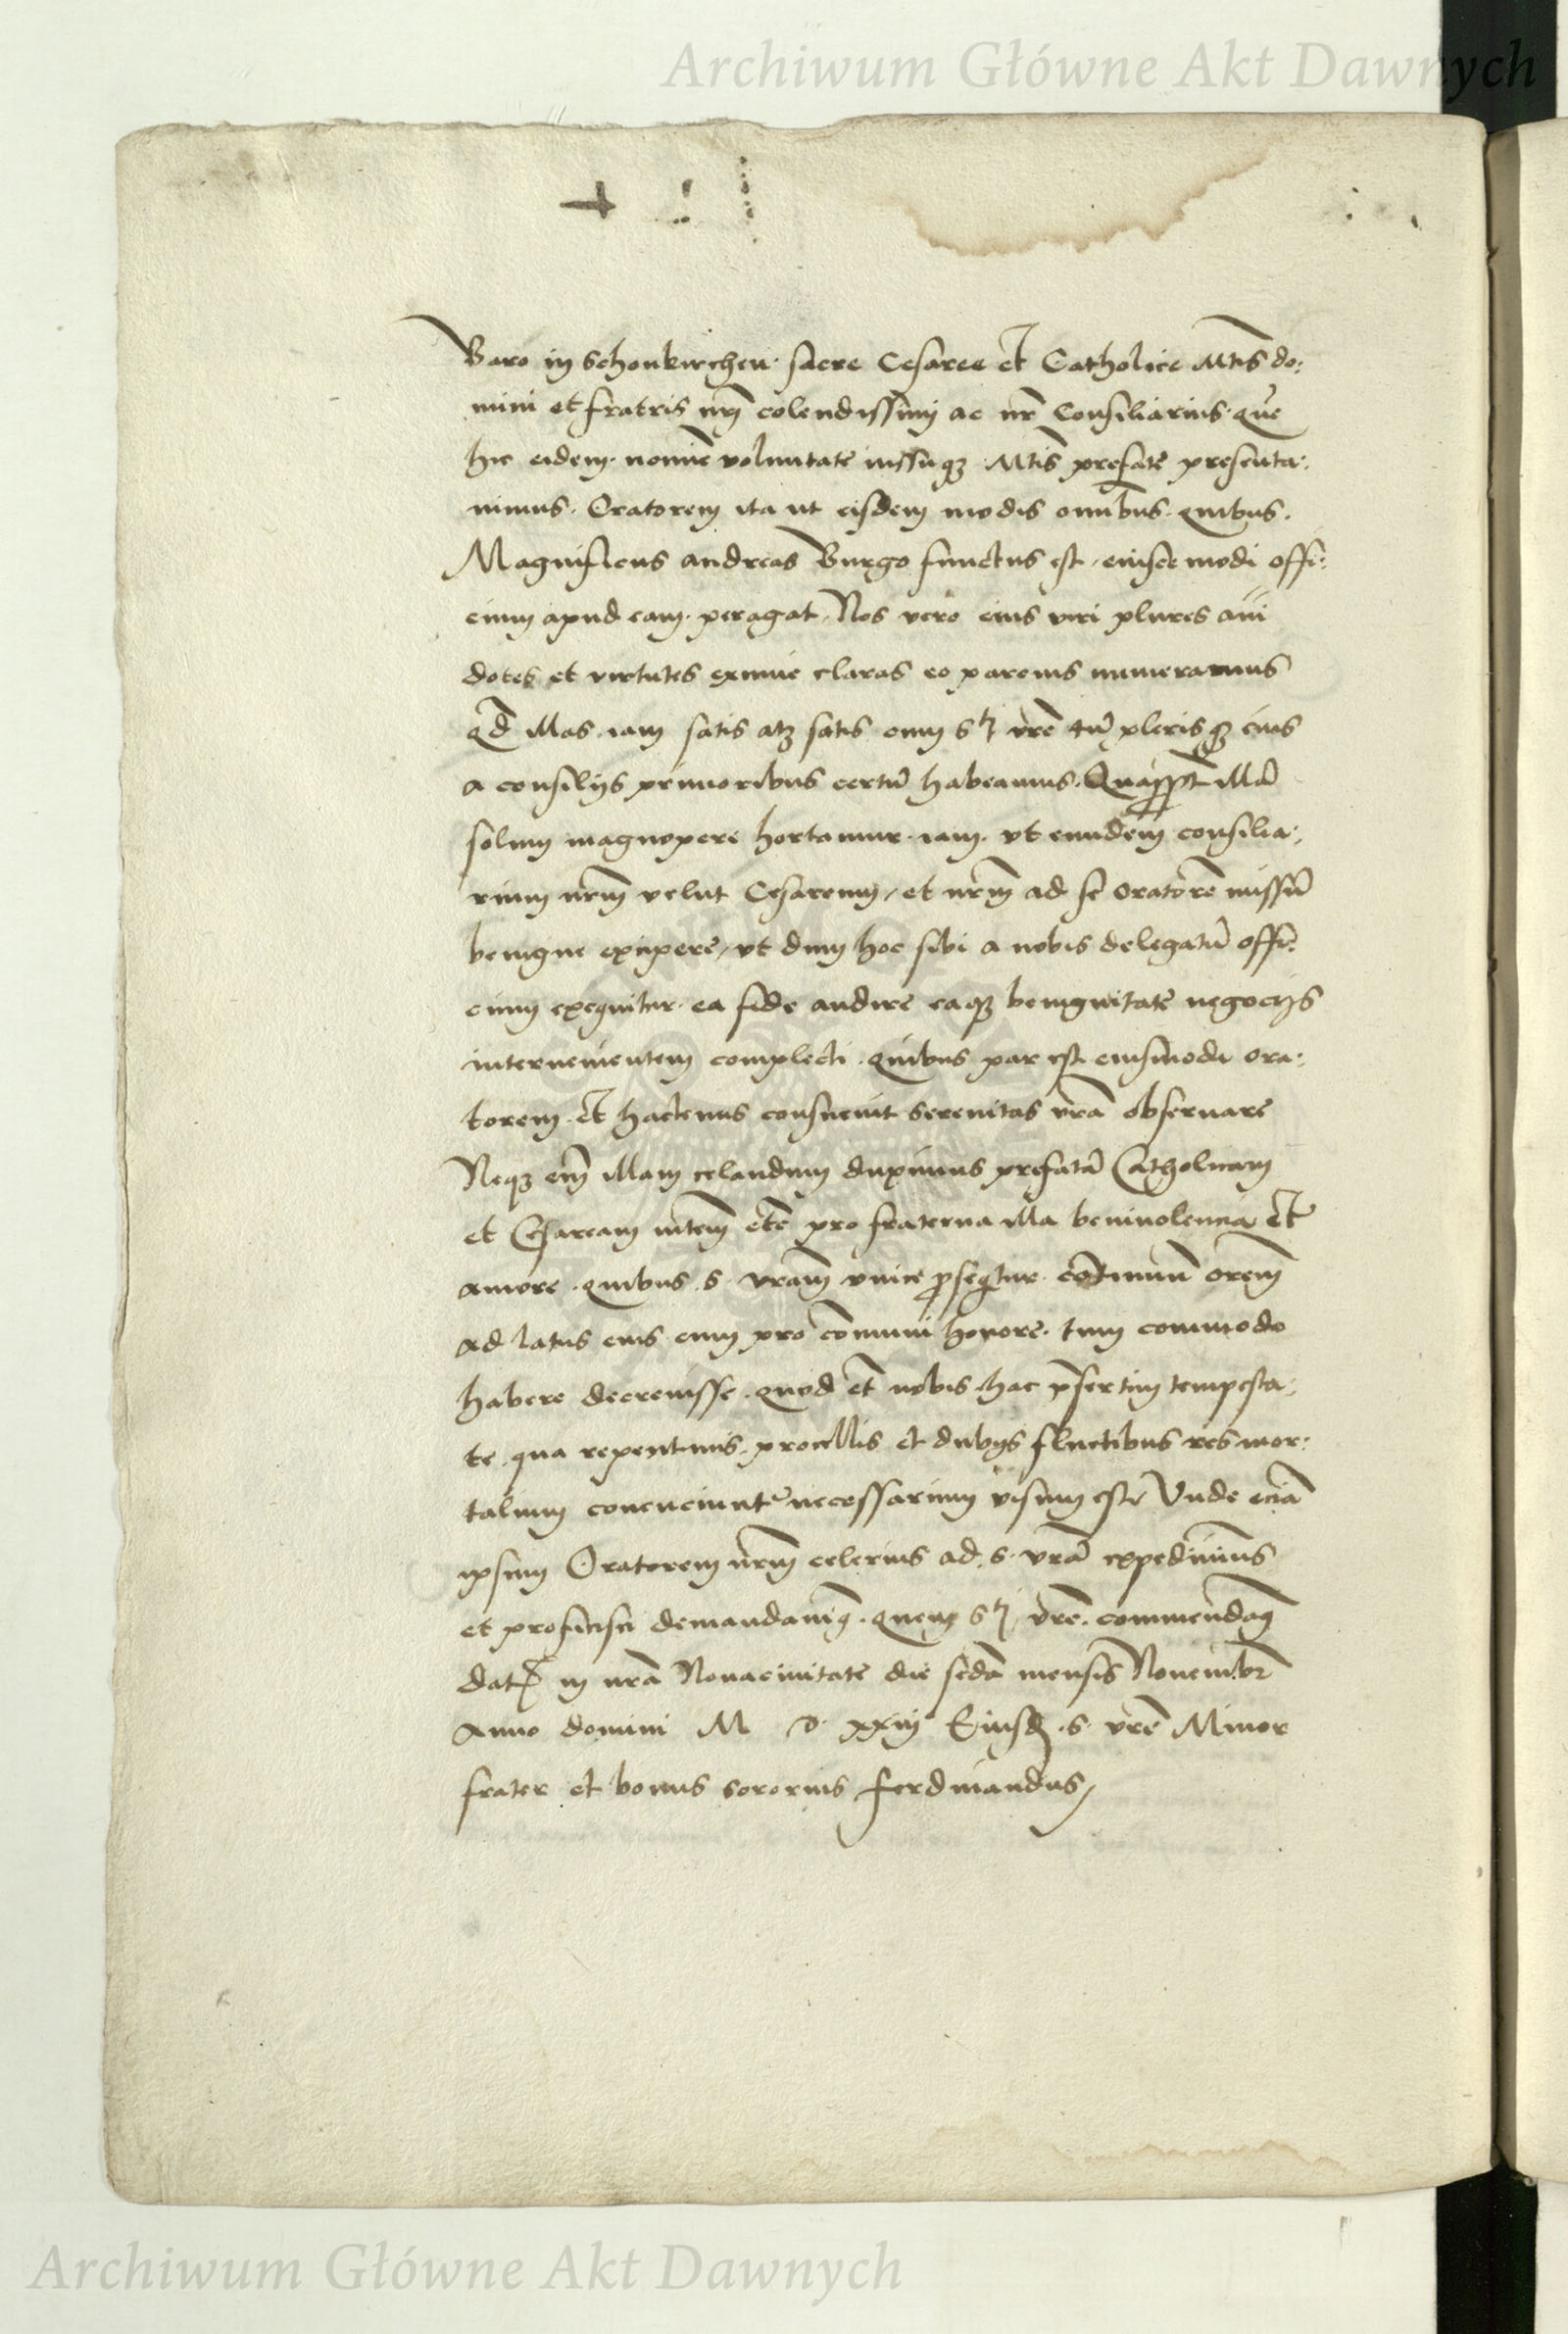 Archiwum Główne Akt Dawnych
Baro in Schonkirchen · sacre Cesaree et Catholice Mtis do:
mini et fratris nrj colendissimj ac nr Consiliarius · que
hic eidem · nomine voluntate iussuqz Mtis prefate presenta:
uimus · Oratorem ita ut eisdem modis omnibus · quibus ·
Magnificus andreas Burgo functus est / eiuscemodi offi:
cium apud eam · peragat · Nos vero eius viri plures aīi
dotes et virtutes eximie claras eo parcius numeramus
qd illas iam satis atqz satis cum Stj vre tū plerisqz eius
a consilijs primoribus certū habeamus · Quapropt illā
solum magnopere hortamur · iam · vt eundem consilia:
rium nrm velut Cesareum / et nrm ad se oratorē missū
benigne excipere / vt dum hoc sibi a nobis delegatū offi:
cium exequitur · ea fide audire eaqz benignitate negocijs
interuenientem complecti · quibus par est eiusmodi ora:
torem · et hactenus consueuit Serenitas vrā obseruare
Neqz em illam celandum duximus prefatā Catholicam
et Cesaream mtem etc pro fraterna illa beniuolencia et
amore · quibus · s · vram vnice prosequitur · continuū orem
ad latus eius cum pro comuni honore · tum commodo
habere decreuisse · quod et nobis hac presertim tempesta:
te · qua repentinis procellis et dubijs fluctibus res mor:
talium concuciuntr necessarium visum est / Vnde eciā
ipsum Oratorem nrm celerius ad · s · vrā expediuimus
et proficisci demandauimus · quem Stj vre · commendamus
dat in nrā Nouaciuitate die scdā mensis Nouembr
Anno domini M D · xxiij Eiusd · s · vre Minor
frater et bonus sororius Ferdinandus /
Archiwum Główne Akt Dawnych